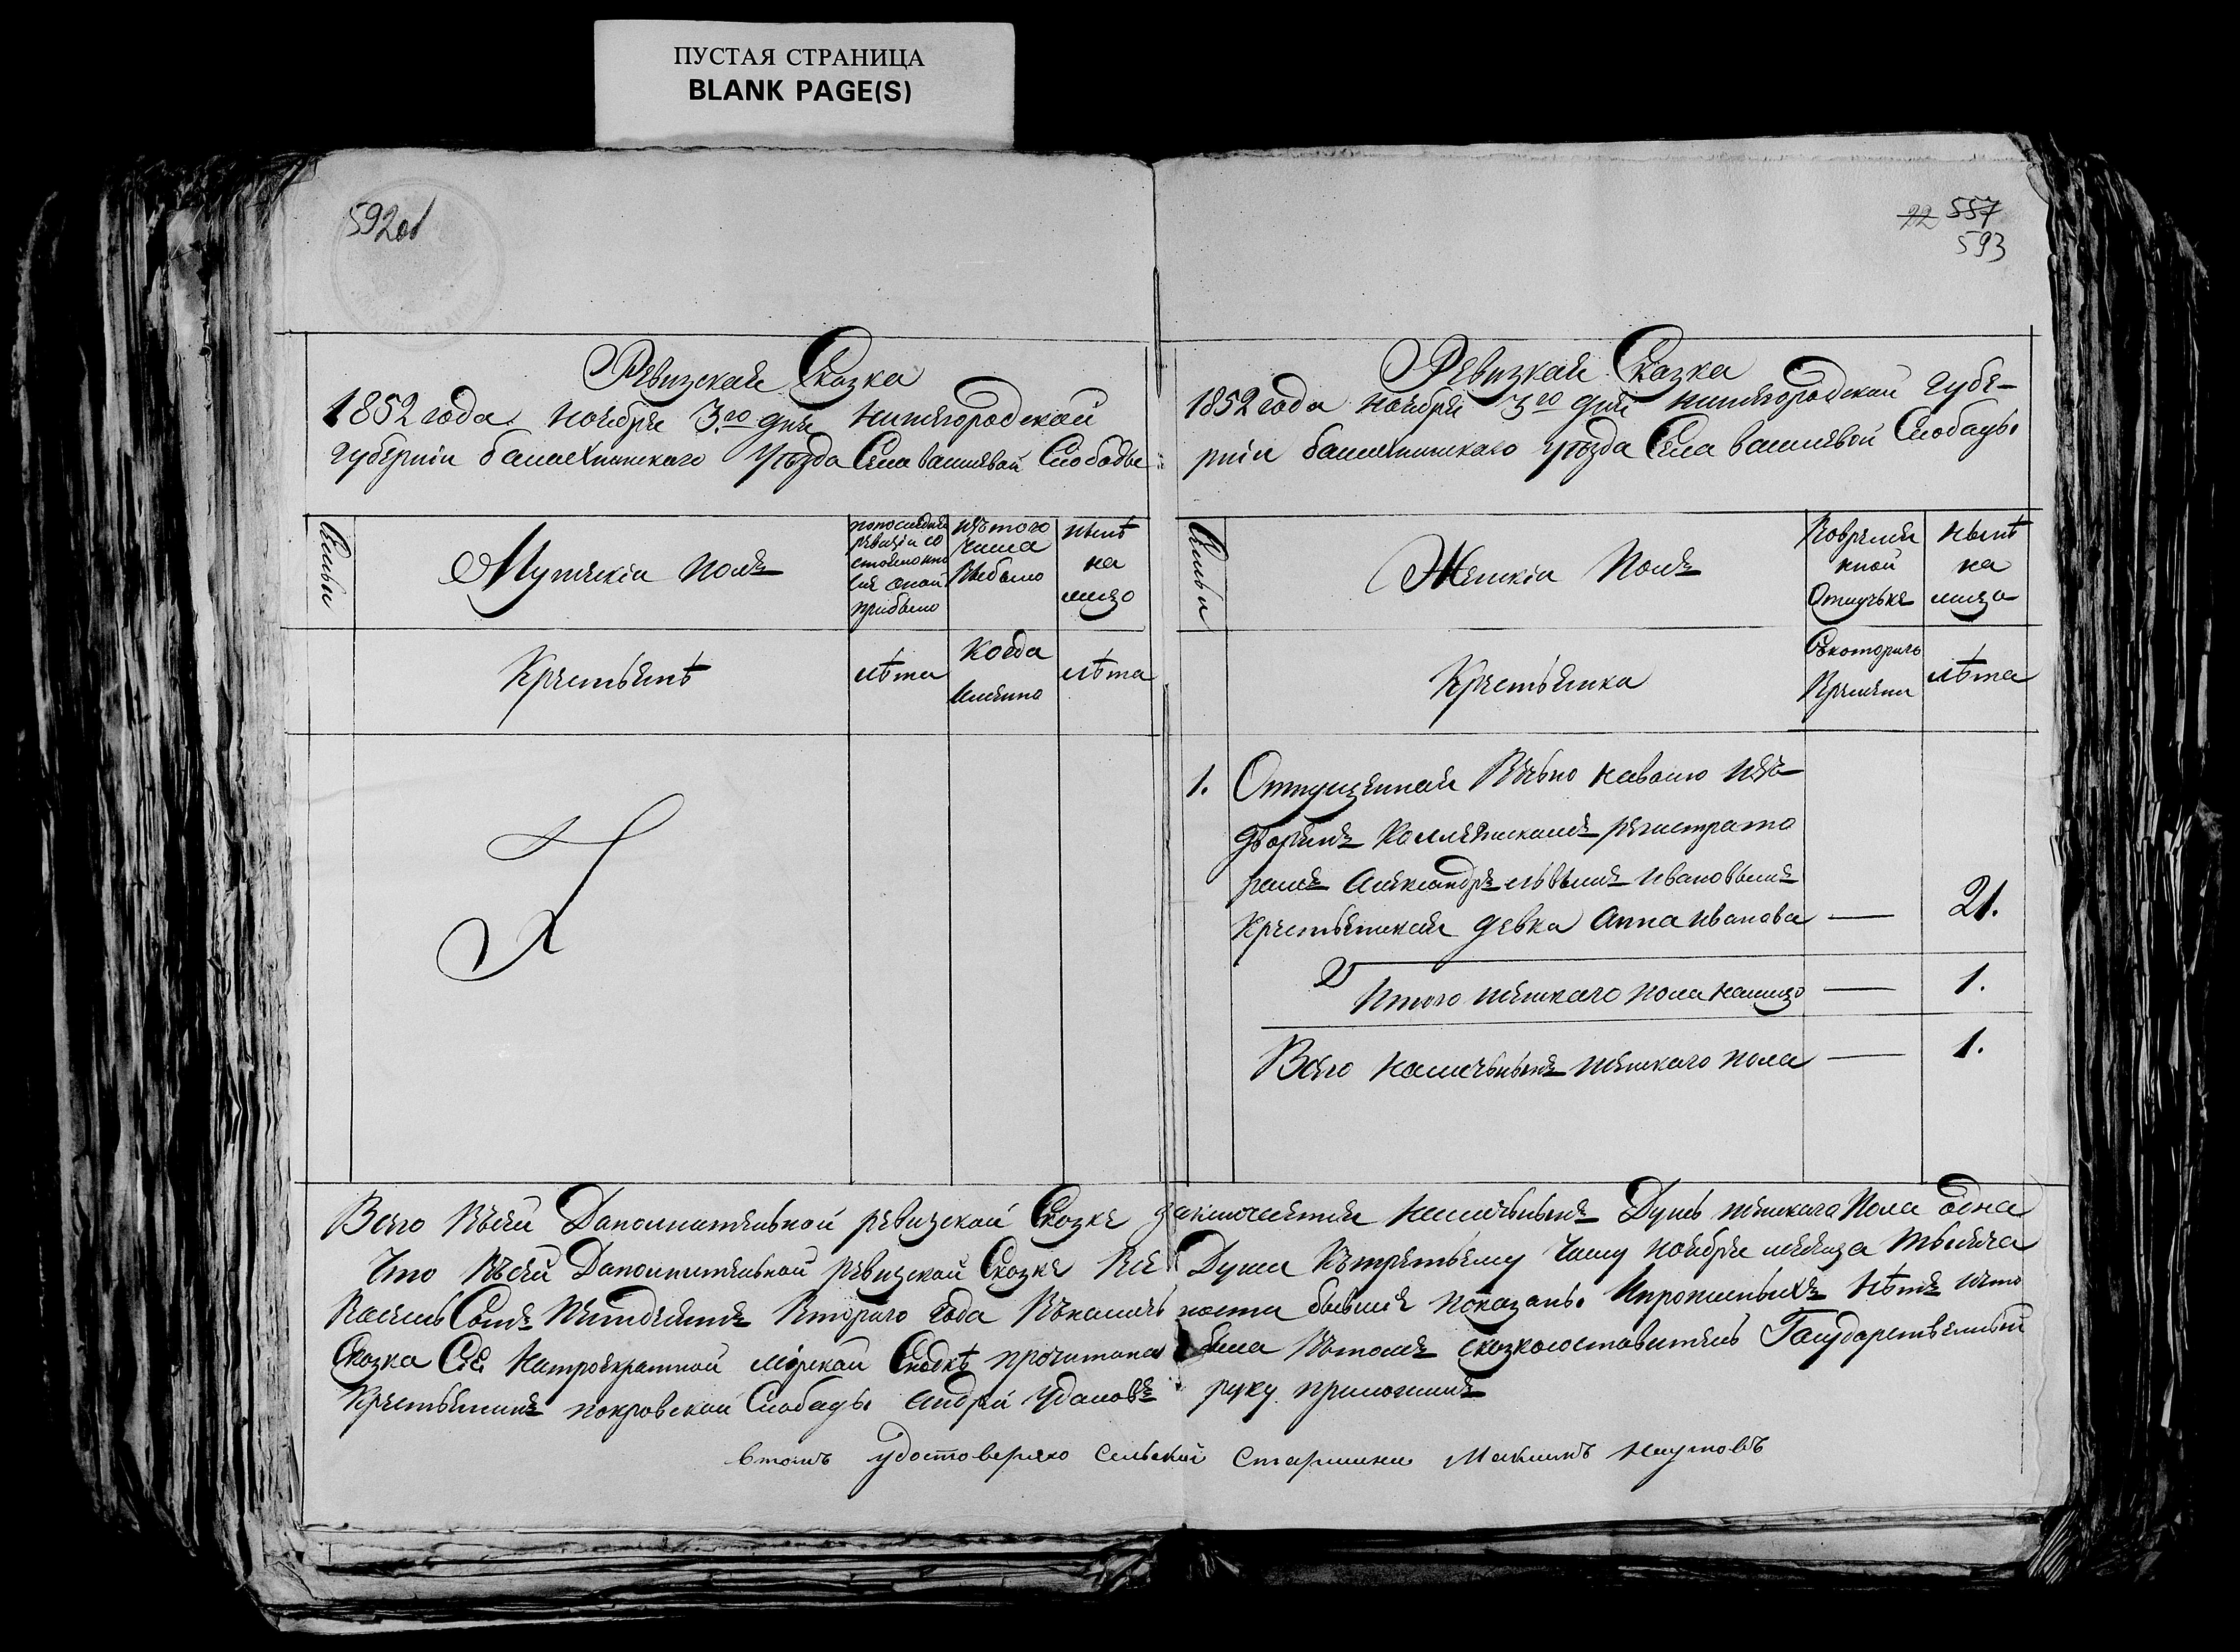 ПУСТАЯ СТРАНИЦА
BLANK PAGE(S)
592об
22 557
593
Ревизская Сказка
1852 года ноября 3го дня нижегородской
губернии балахнинского Уѣзда Села василевой Слободы
Семьи
Мужескiй полъ
попоследней
ревизiи со
стояло и по
сле оной
прибыло
изътого
числа
выбыло
нынѣ
на
лицо
Крестьянѣ
лѣта
когда
имянно
лѣта
Ревизкая Сказка
1852 года ноября 3го дня нижегородской губе-
рнiи балахнинскаго уѣзда Села василевой Слободы
Семьи
Женскiй полъ
Вовремен
ной
Отлучьке
нынѣ
на
лицо
Крестьянка
Съкотораго
Времени
лѣта
1. Отпущенная Вечьно наволю изъ-
дворянъ Коллежскимъ регистрато
ромъ Александръ львымъ ивановымъ
Крестьянская девка Анна иванова — 21.
Итого женскаго пола налицо — 1.
Всего наличьныхъ женскаго пола — 1.
Всего Въсей Дополнительной ревизской Сказке заключается наличьныхъ Душь женскаго Пола одна
Что Въсей Дополнительной ревизской Сказке Все Души Кътретьему Числу ноября месяца тысяча
Восемь Сотъ Пятьдесятъ Втораго года Въналичь ности бывшие показаны Ипрописьныхъ нѣтъ ичто
Сказка Сiя Натроекратной мiрской Сходкѣ прочитана была Вътомъ сказкосоставитель Государственный
Крестьянинъ покровской Слободы андрей Удаловъ руку приложилъ
втомъ удостоверяю Сельский Старшина Максимъ Наумовъ